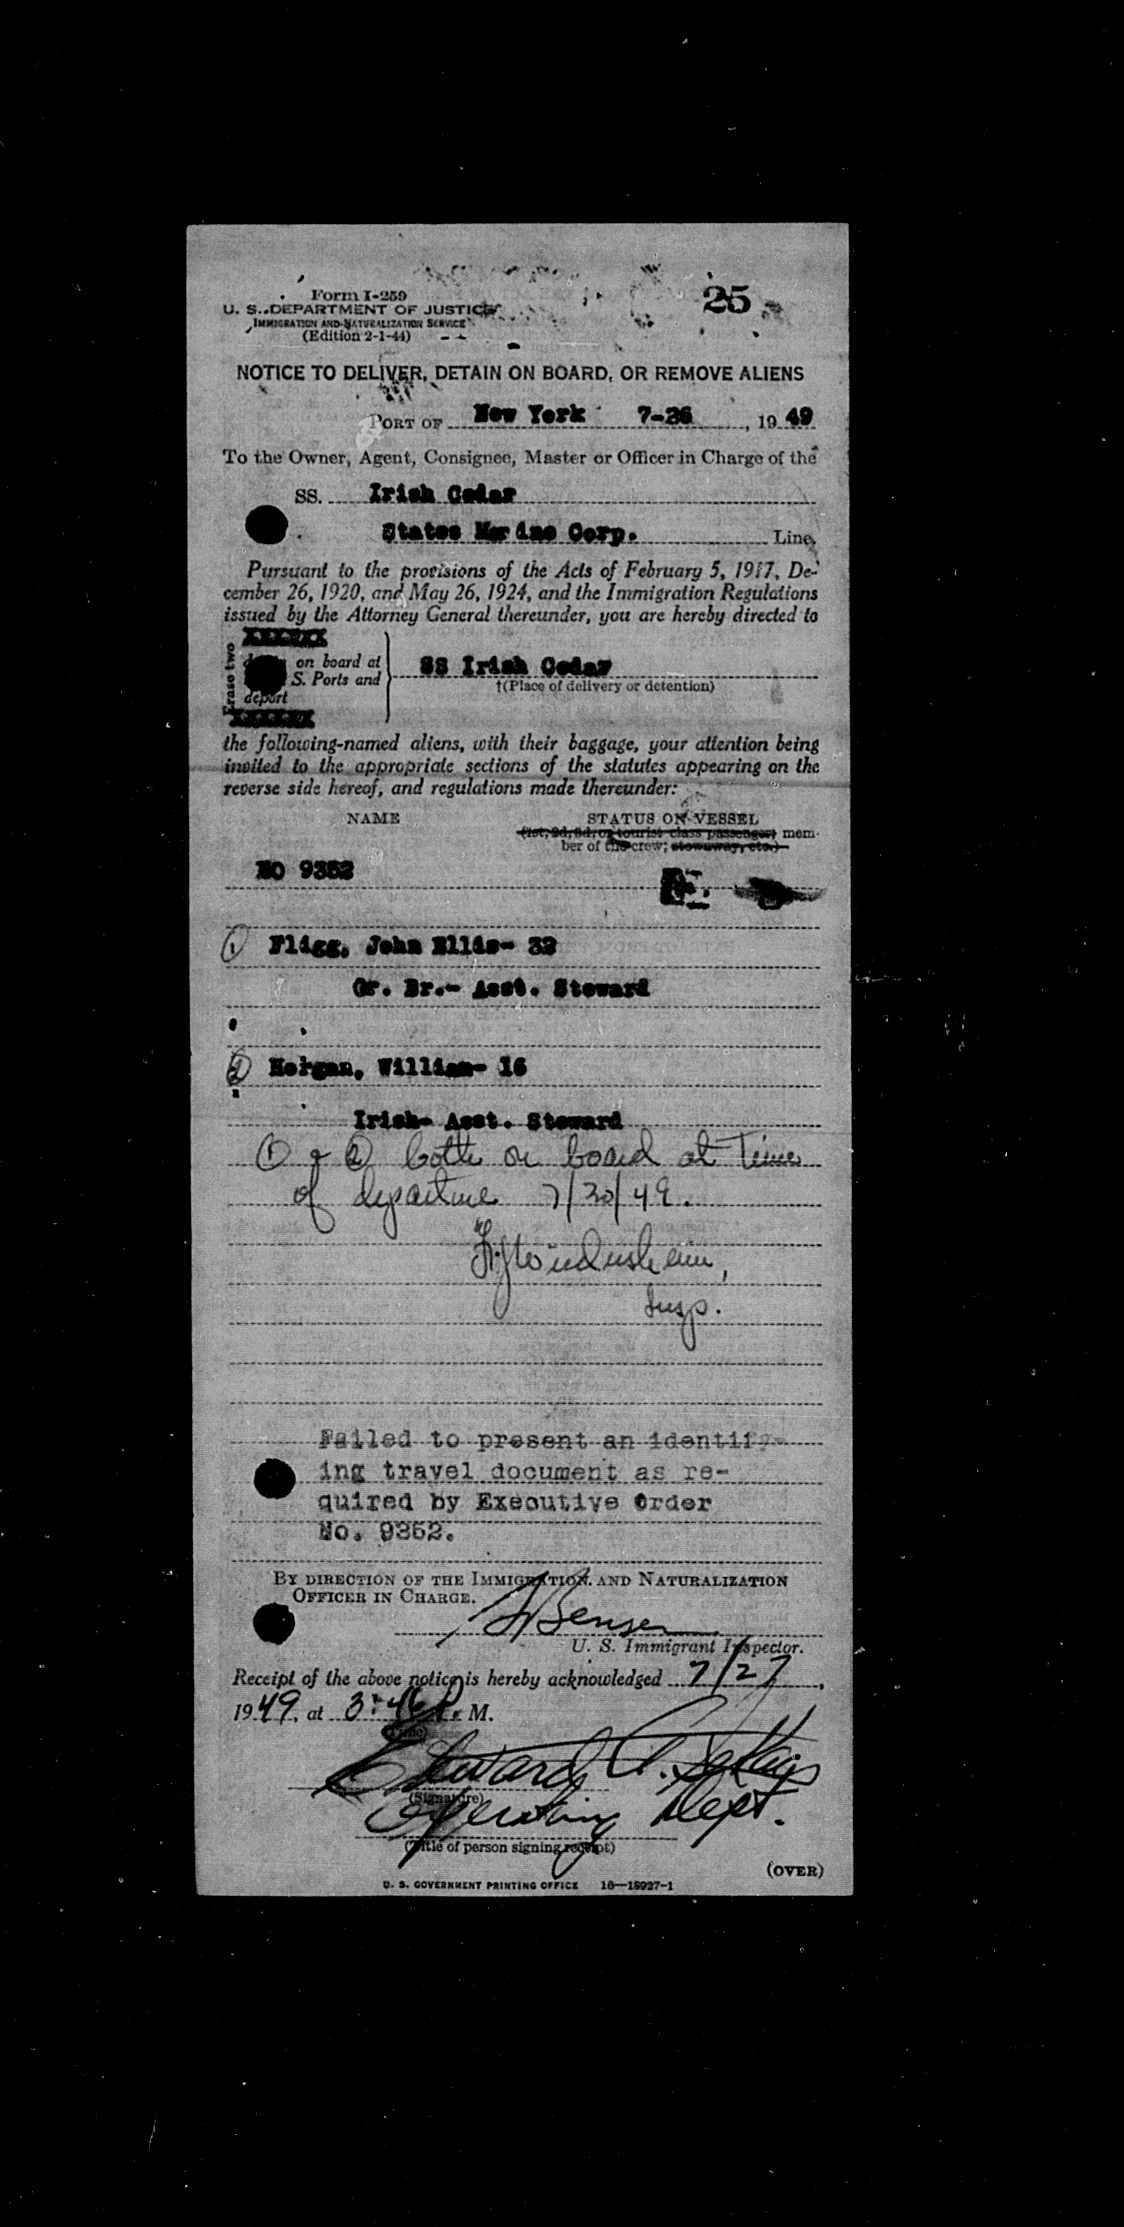 Form I-259
25
U. S. DEPARTMENT OF JUSTICE
IMMIGRATION AND NATURALIZATION SERVICE
(Edition 2-1-44)
NOTICE TO DELIVER, DETAIN ON BOARD, OR REMOVE ALIENS
PORT OF New York 7-26, 1949
To the Owner, Agent, Consignee, Master or Officer in Charge of the
SS. Irish Cedar
States Marine Corp. Line,
Pursuant to the provisions of the Acts of February 5, 1917, De-
cember 26, 1920, and May 26, 1924, and the Immigration Regulations
issued by the Attorney General thereunder, you are hereby directed to
Erase two
on board at
S. Ports and
deport
SS Irish Cedar
†(Place of delivery or detention)
the following-named aliens, with their baggage, your attention being
invited to the appropriate sections of the statutes appearing on the
reverse side hereof, and regulations made thereunder:
NAME STATUS ON VESSEL
(1st, 2d, 3d, or tourist class passenger; mem-
ber of the crew; stowaway, etc.)
EO 9352
① Fligg, John Ellis- 32
Gr. Br.- Asst. Steward
② Horgan, William- 16
Irish- Asst. Steward
① & ② both on board at time
of departure 7/30/49.
Insp.
Failed to present an identify-
ing travel document as re-
quired by Executive Order
No. 9352.
BY DIRECTION OF THE IMMIGRATION AND NATURALIZATION
OFFICER IN CHARGE.
U. S. Immigrant Inspector.
Receipt of the above notice is hereby acknowledged 7/27,
1949, at 3:46 P. M.
(Time)
Edward A.
(Signature)
Operating Dept.
(Title of person signing receipt)
(OVER)
U. S. GOVERNMENT PRINTING OFFICE 16—18927-1